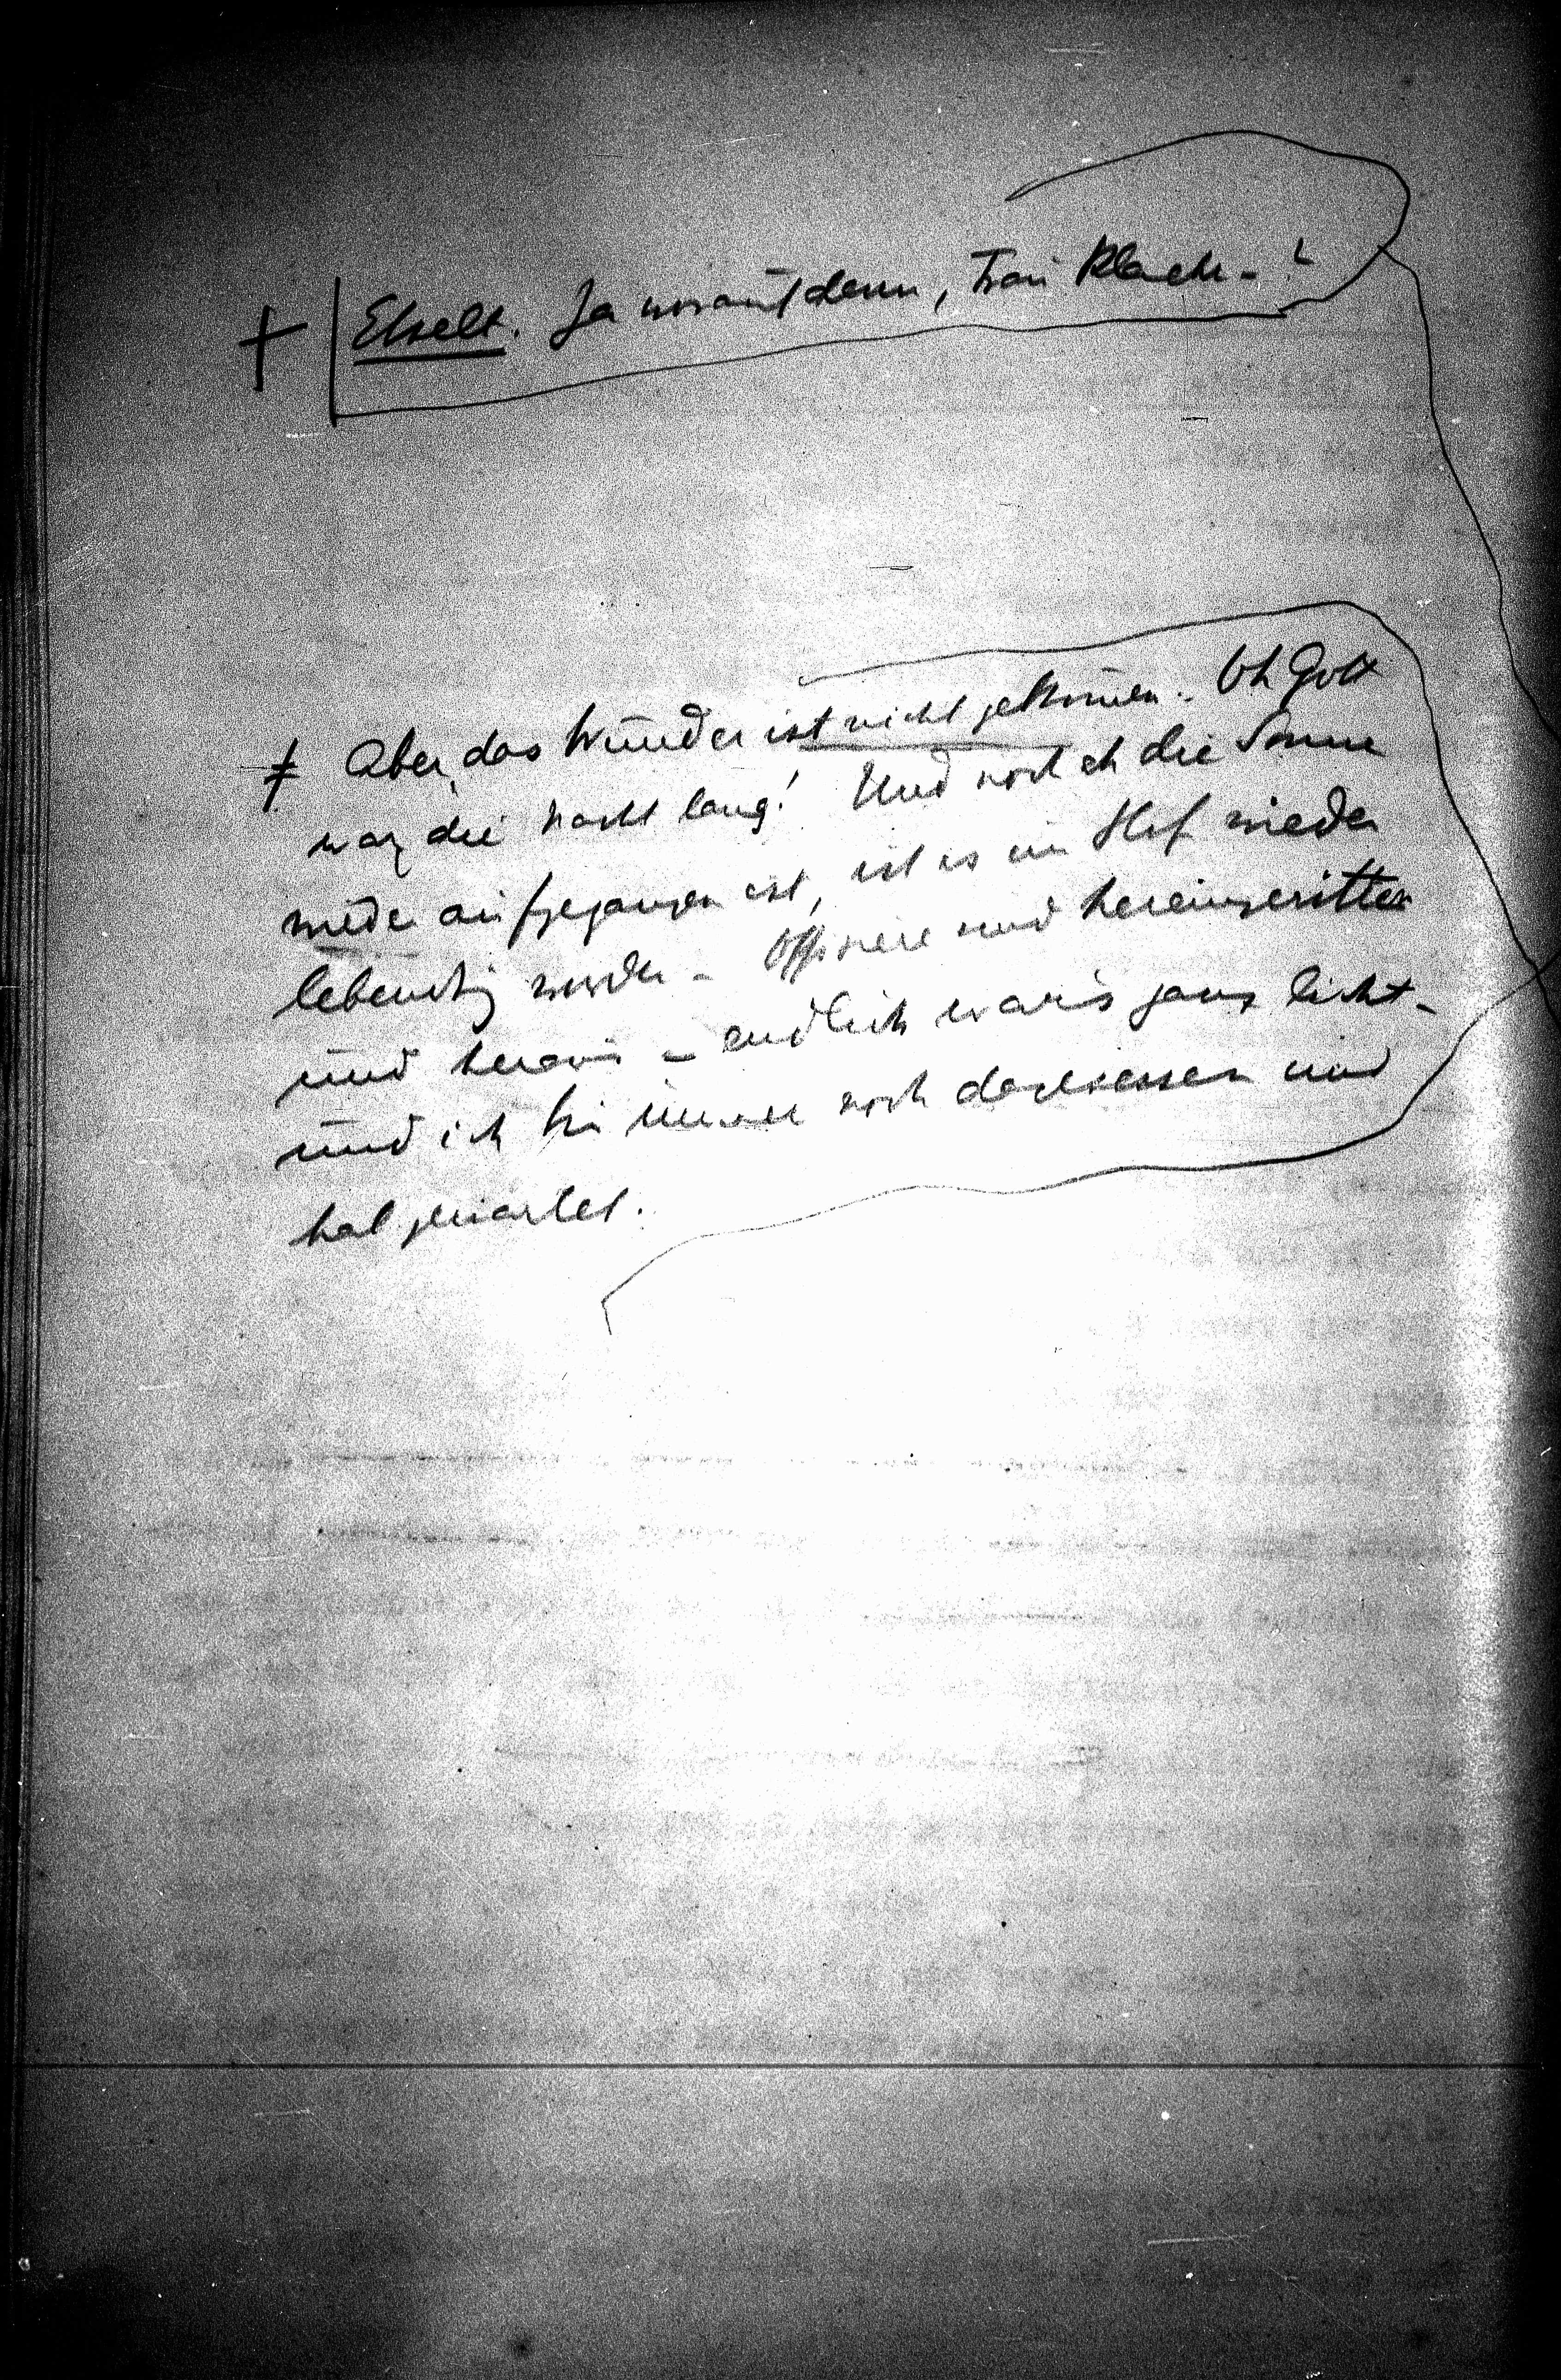 + Eltselt. Ja worauf denn, Frau Klaehr - ?
‡ Aber das Wunder ist nicht gekommen. Oh Gott
war die Nacht lang! Und noch eh die Sonne
wieder aufgegangen ist, ist es im Hof wieder
lebendig worden - Offiziere sind hereingeritten
und heraus - endlich war's ganz licht -
und ich bin immer noch dagesessen und
hab gewartet.